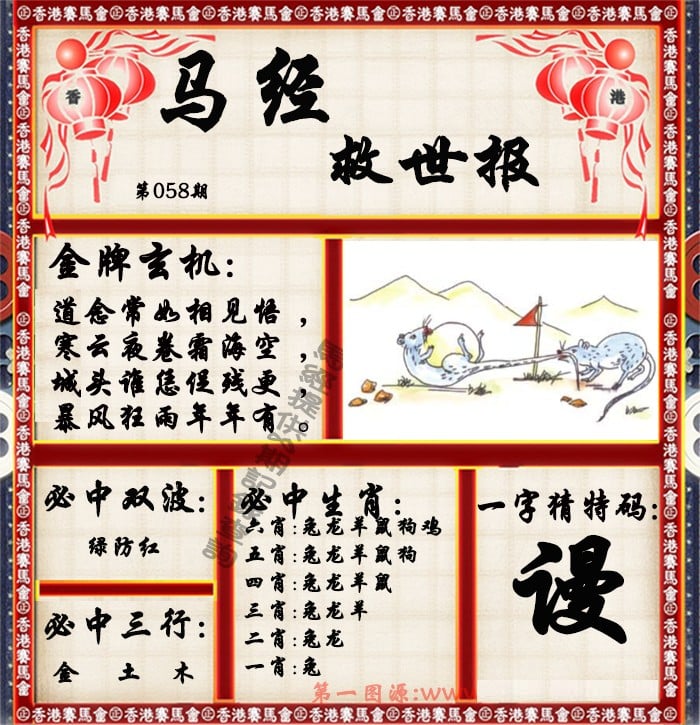 香
港
马经
救世报
第058期
金牌玄机：
道念常如相见悟，
寒云夜卷霜海空，
城头谁恁促残更，
暴风狂雨年年有。
必中双波：
绿防红
必中三行：
金 土 木
必中生肖：
六肖：兔龙羊鼠狗鸡
五肖：兔龙羊鼠狗
四肖：兔龙羊鼠
三肖：兔龙羊
二肖：兔龙
一肖：兔
一字猜特码：
谩
第一图源：www
香港賽馬會